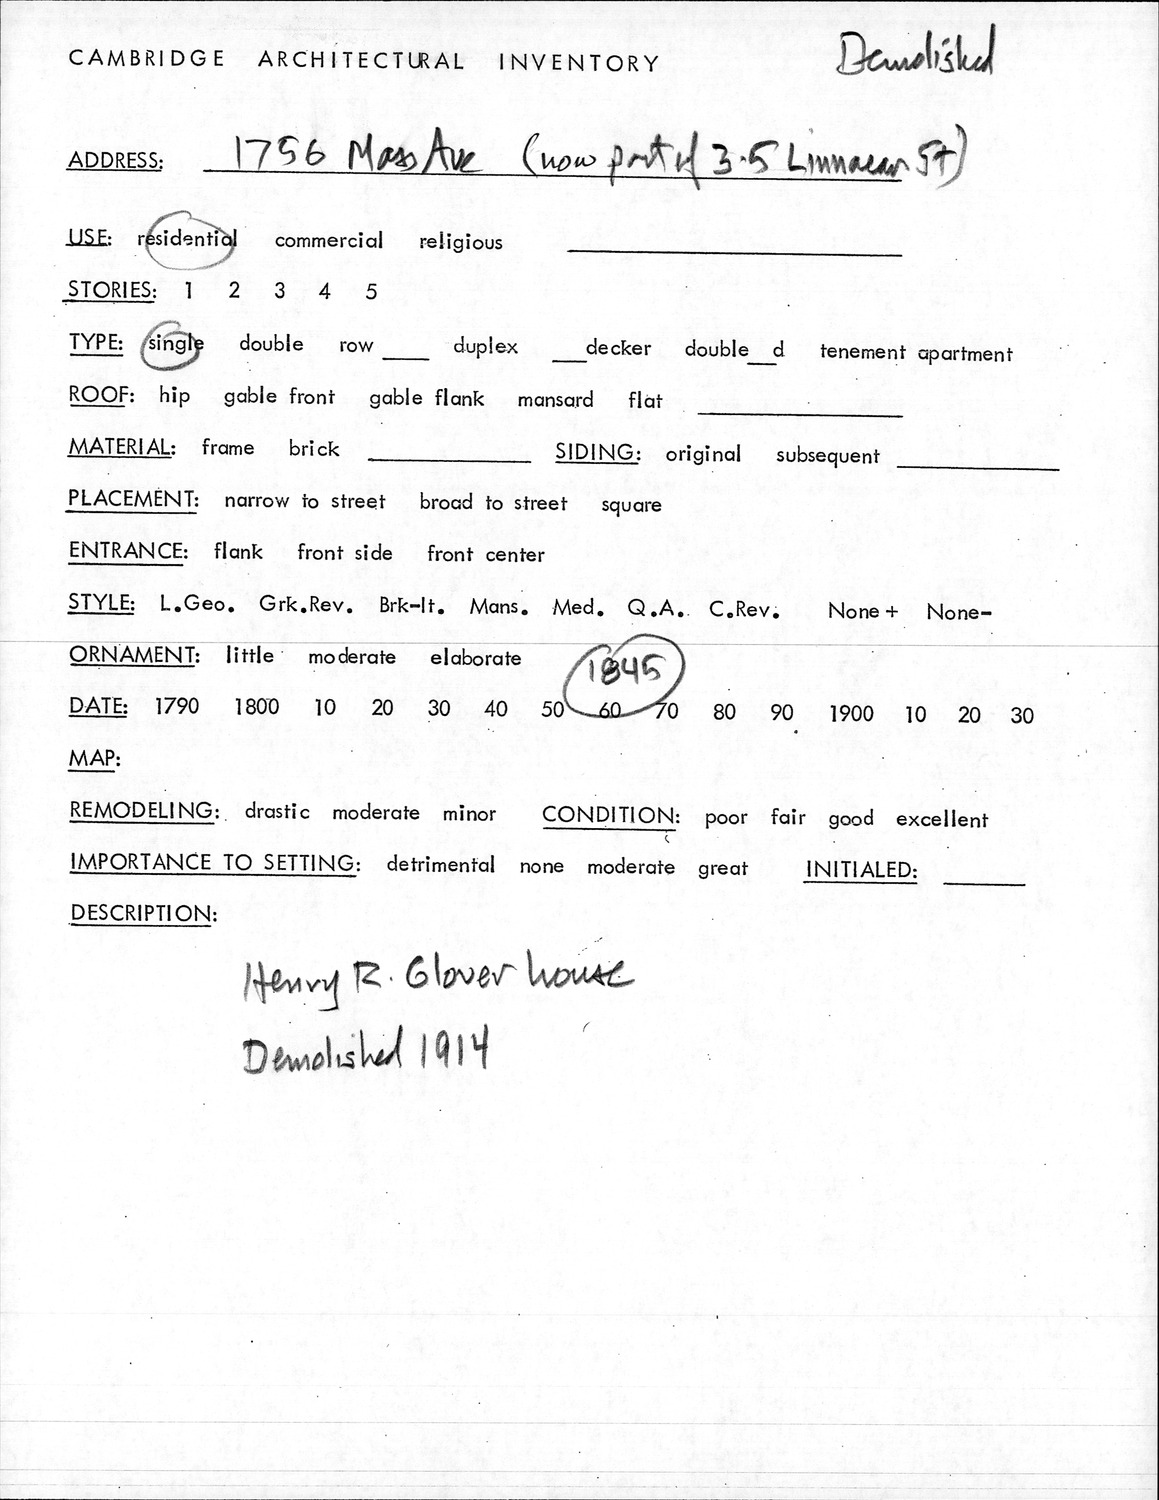 Demolished
CAMBRIDGE ARCHITECTURAL INVENTORY
ADDRESS: 1756 Mass Ave (now part of 3-5 Linnaean St)
USE: residential commercial religious
STORIES: 1 2 3 4 5
TYPE: single double row ___ duplex ___decker double__d tenement apartment
ROOF: hip gable front gable flank mansard flat ___
MATERIAL: frame brick ___ SIDING: original subsequent ___
PLACEMENT: narrow to street broad to street square
ENTRANCE: flank front side front center
STYLE: L.Geo. Grk.Rev. Brk-It. Mans. Med. Q.A. C.Rev. None+ None-
ORNAMENT: little moderate elaborate 1845
DATE: 1790 1800 10 20 30 40 50 60 70 80 90 1900 10 20 30
MAP:
REMODELING: drastic moderate minor CONDITION: poor fair good excellent
IMPORTANCE TO SETTING: detrimental none moderate great INITIALED: ___
DESCRIPTION:
Henry R. Glover house
Demolished 1914